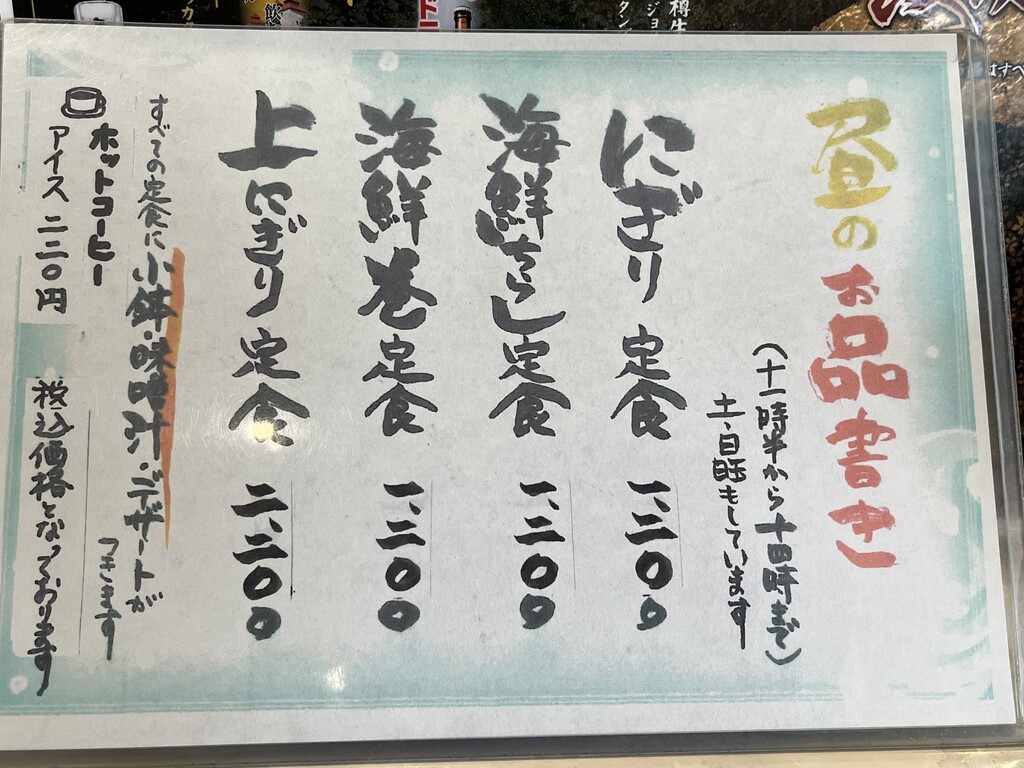 昼のお品書き
(十一時半から十四時まで)
土・日・祝もしています
にぎり定食 一、二〇〇
海鮮ちらし定食 一、二〇〇
海鮮巻定食 一、二〇〇
上にぎり定食 二、二〇〇
すべての定食に小鉢・味噌汁・デザートが
つきます
ホットコーヒー
アイス 二二〇円
税込価格となっております
樽生